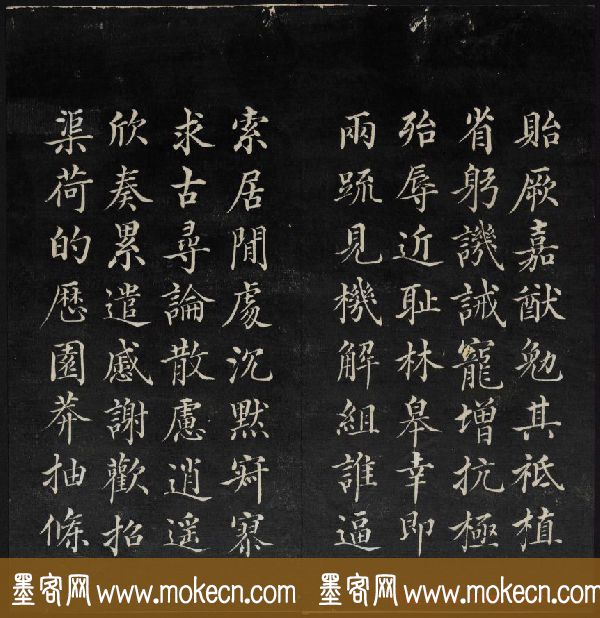 貽厥嘉猷勉其祗植
省躬譏誡寵增抗極
殆辱近耻林皋幸即
兩疏見機解組誰逼
索居閒處沉默寂寥
求古尋論散慮逍遥
欣奏累遣慼謝歡招
渠荷的歷園莽抽條
墨客网 www.mokecn.com 墨客网 www.mokecn.com